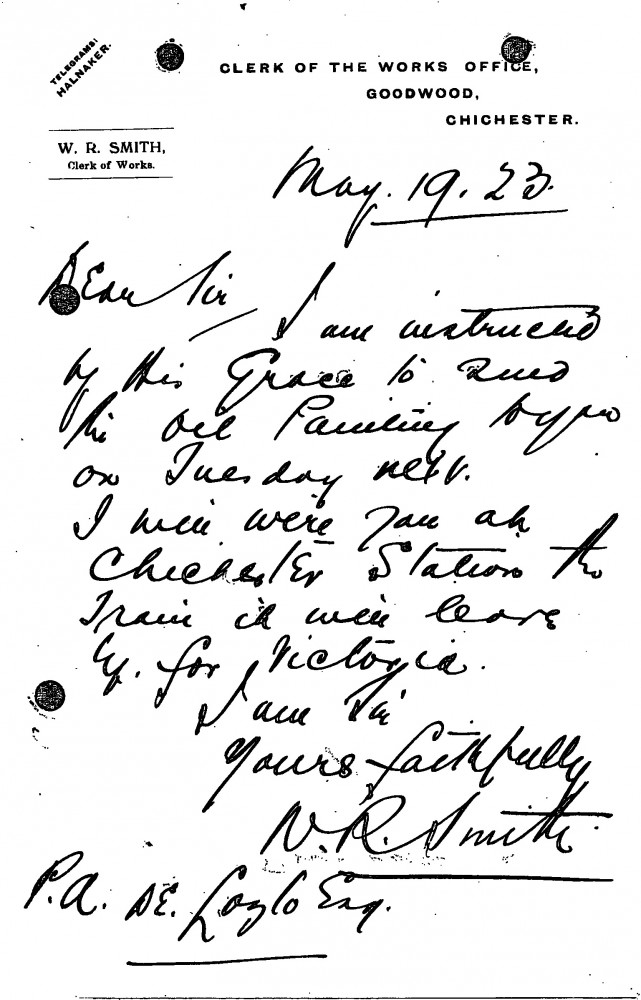 TELEGRAMS:
HALNAKER.
CLERK OF THE WORKS OFFICE,
GOODWOOD,
CHICHESTER.
W. R. SMITH,
Clerk of Works.
May. 19. 23.
Dear Sir
I am instructed
by His Grace to send
the Oil Painting to you
on Tuesday next.
I will wire you at
Chichester Station the
Train it will leave
by. for Victoria.
I am Sir
Yours faithfully
W. R. Smith.
P. A. De. Laszlo Esq.